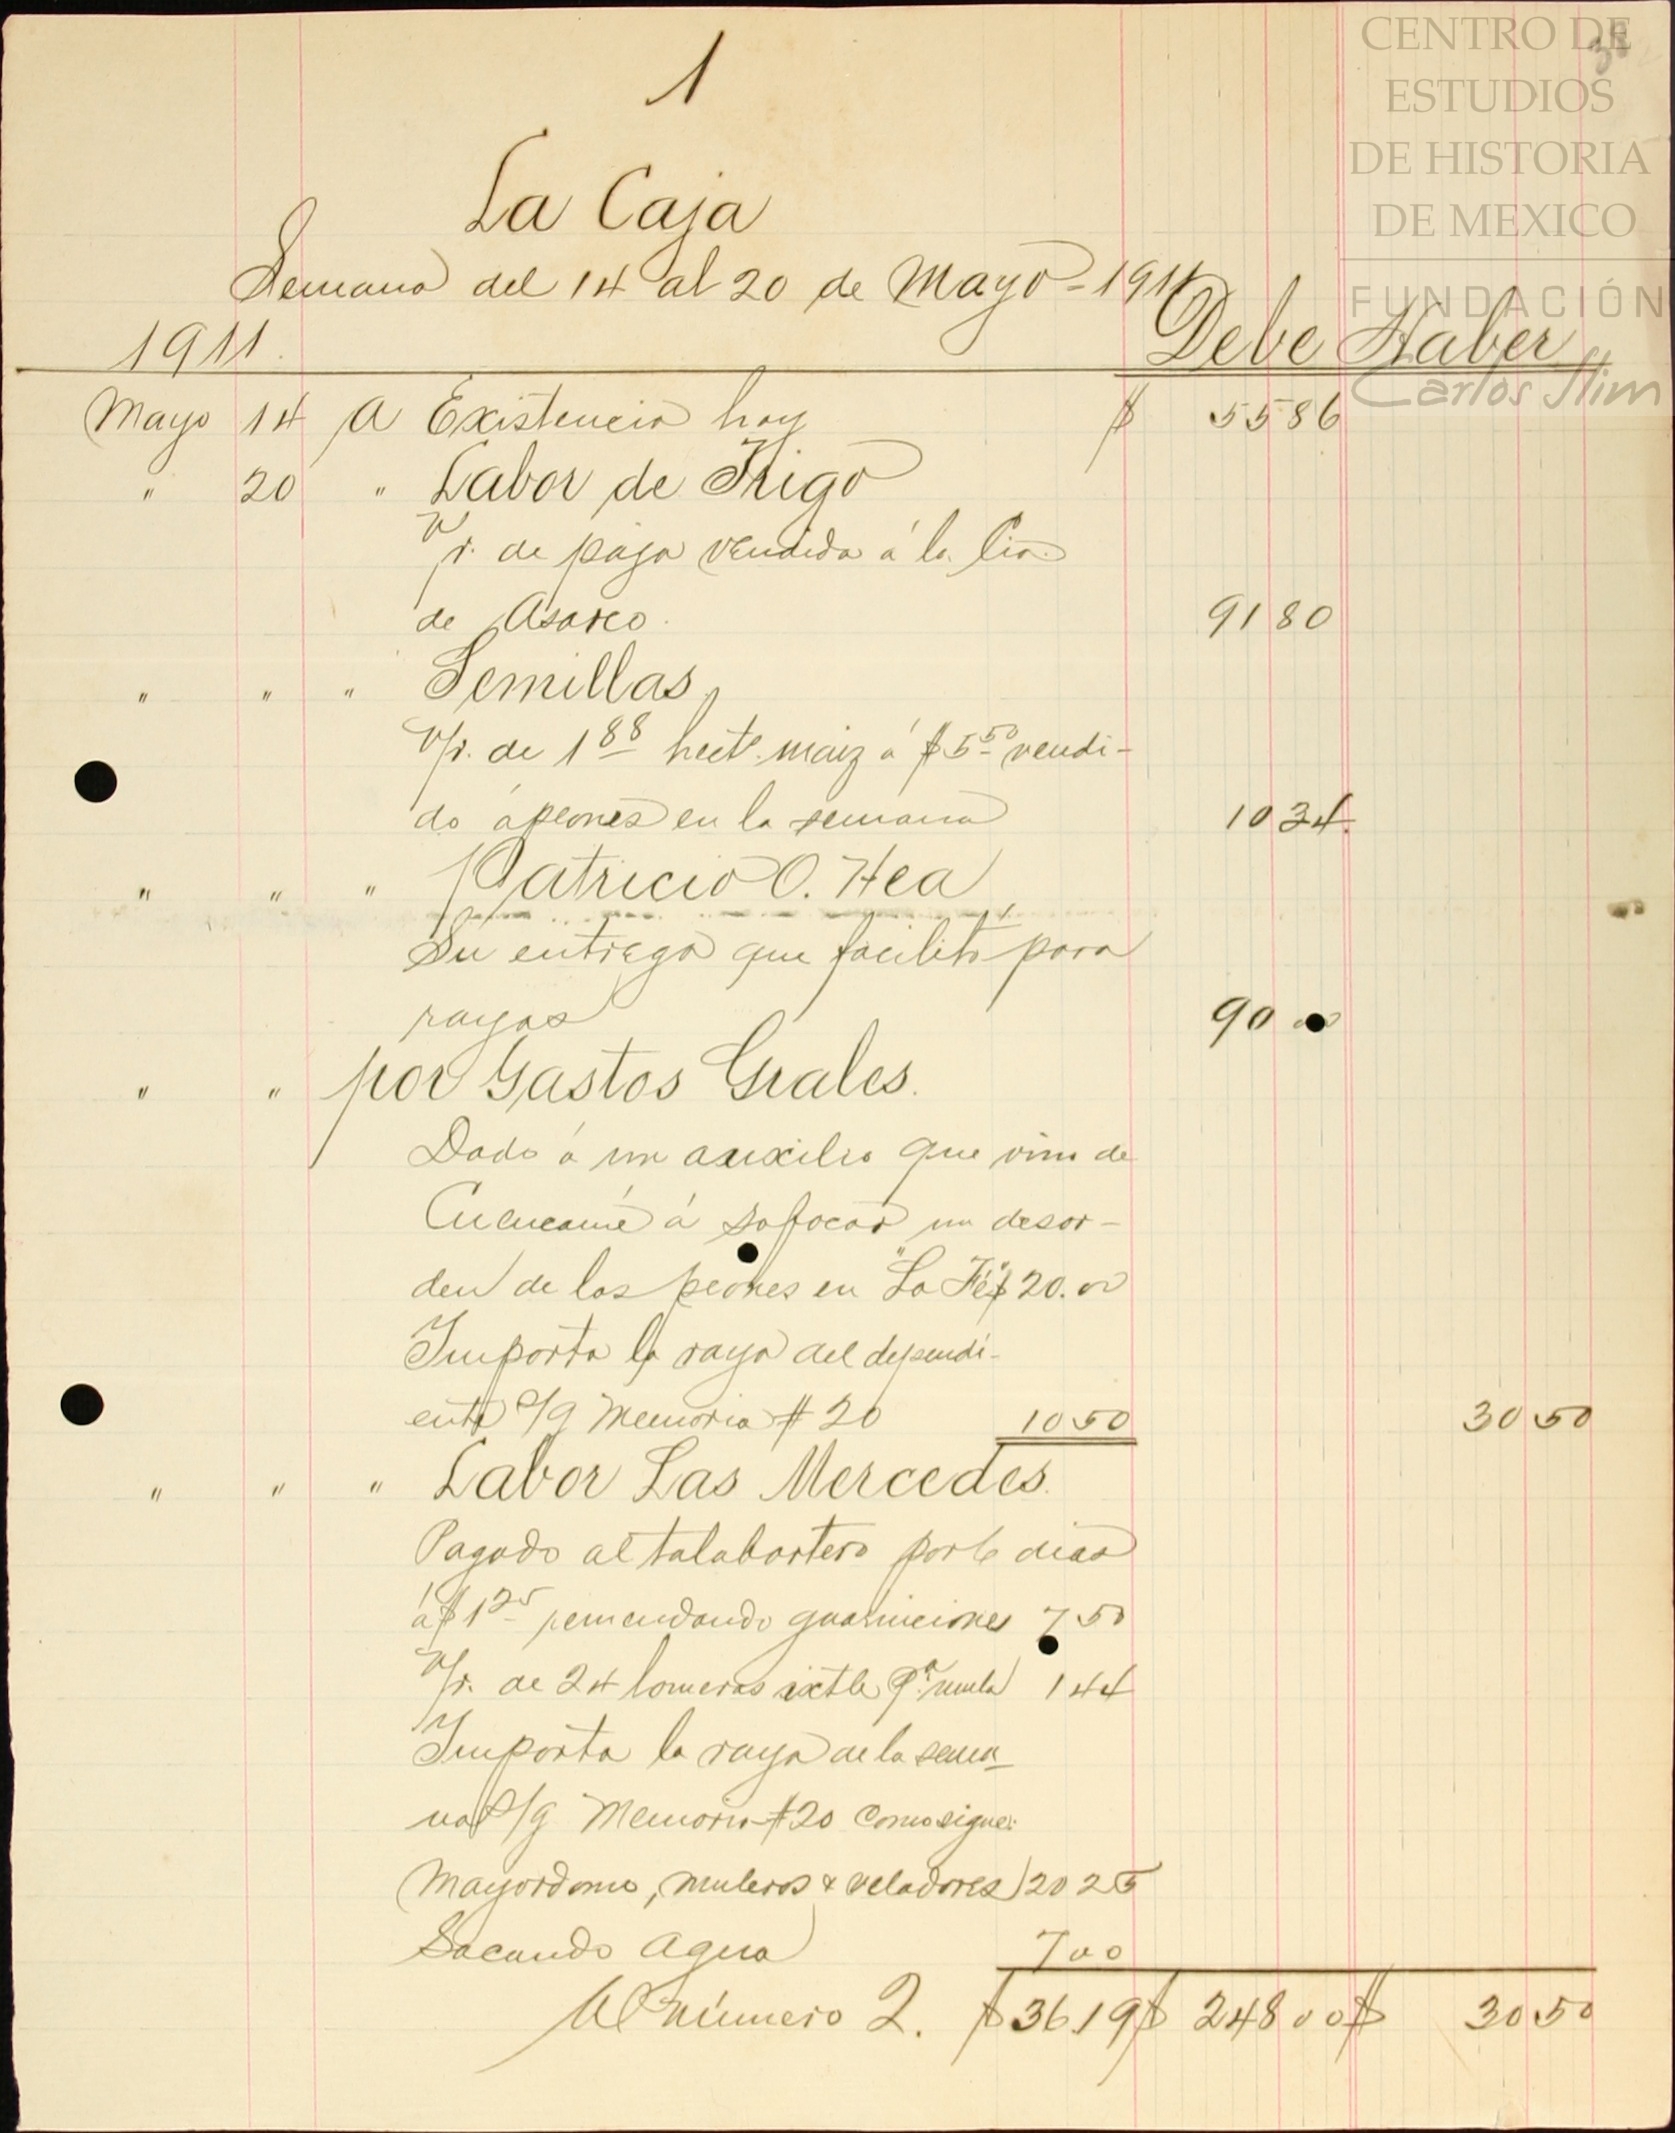 CENTRO DE
ESTUDIOS
DE HISTORIA
DE MEXICO
FUNDACIÓN
Carlos Slim
1
La Caja
Semana del 14 al 20 de Mayo - 1911
1911. Debe Haber
Mayo 14 A Existencia hoy $ 55 86
" 20 " Labor de Trigo
V/r. de paja vendida á la Cia
de Asarco. 91 80
" " " Semillas,
V/r. de 1 88 hect. maiz á $ 5 50 vendi-
do á peones en la semana 10 34.
" " " Patricio O. Hea
Su entrega que facilitó para
rayas 90 00
" " por Gastos Grales.
Dado á un auxilio que vino de
Cuencamé á sofocar un desor-
den de los peones en "La Fé" $ 20.00
Importa la raya del dependi-
ente s/g Memoria # 20 10 50 30 50
" " " Labor Las Mercedes.
Pagado al talabartero por 6 dias
á $ 1 25 remendando guarniciones 7 50
V/r. de 24 lomeras ixtle pa. mula 1 44
Importa la raya de la sema-
na s/g Memoria # 20 como sigue:
Mayordomo, muleros & veladores 20 25
Sacando agua 7 00
Al número 2. $ 36.19 $ 248 00 $ 30 50